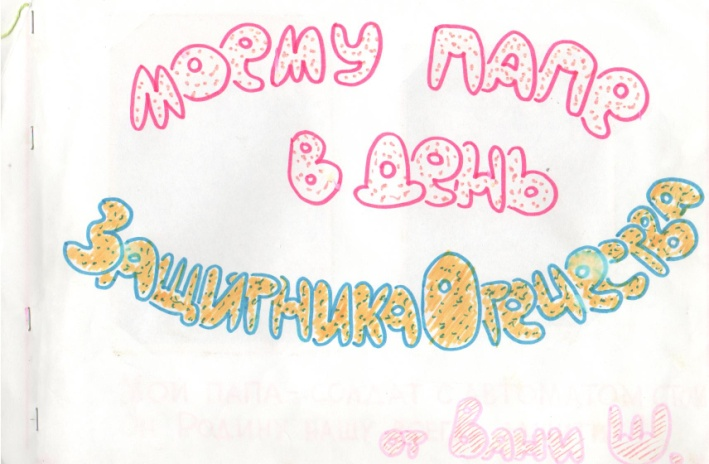 МОЕМУ ПАПЕ
В ДЕНЬ
ЗАЩИТНИКА ОТЕЧЕСТВА
ПАПА СОЛДАТ С АВТОМАТОМ
РОДИНУ НАШУ
от Вани Ш.